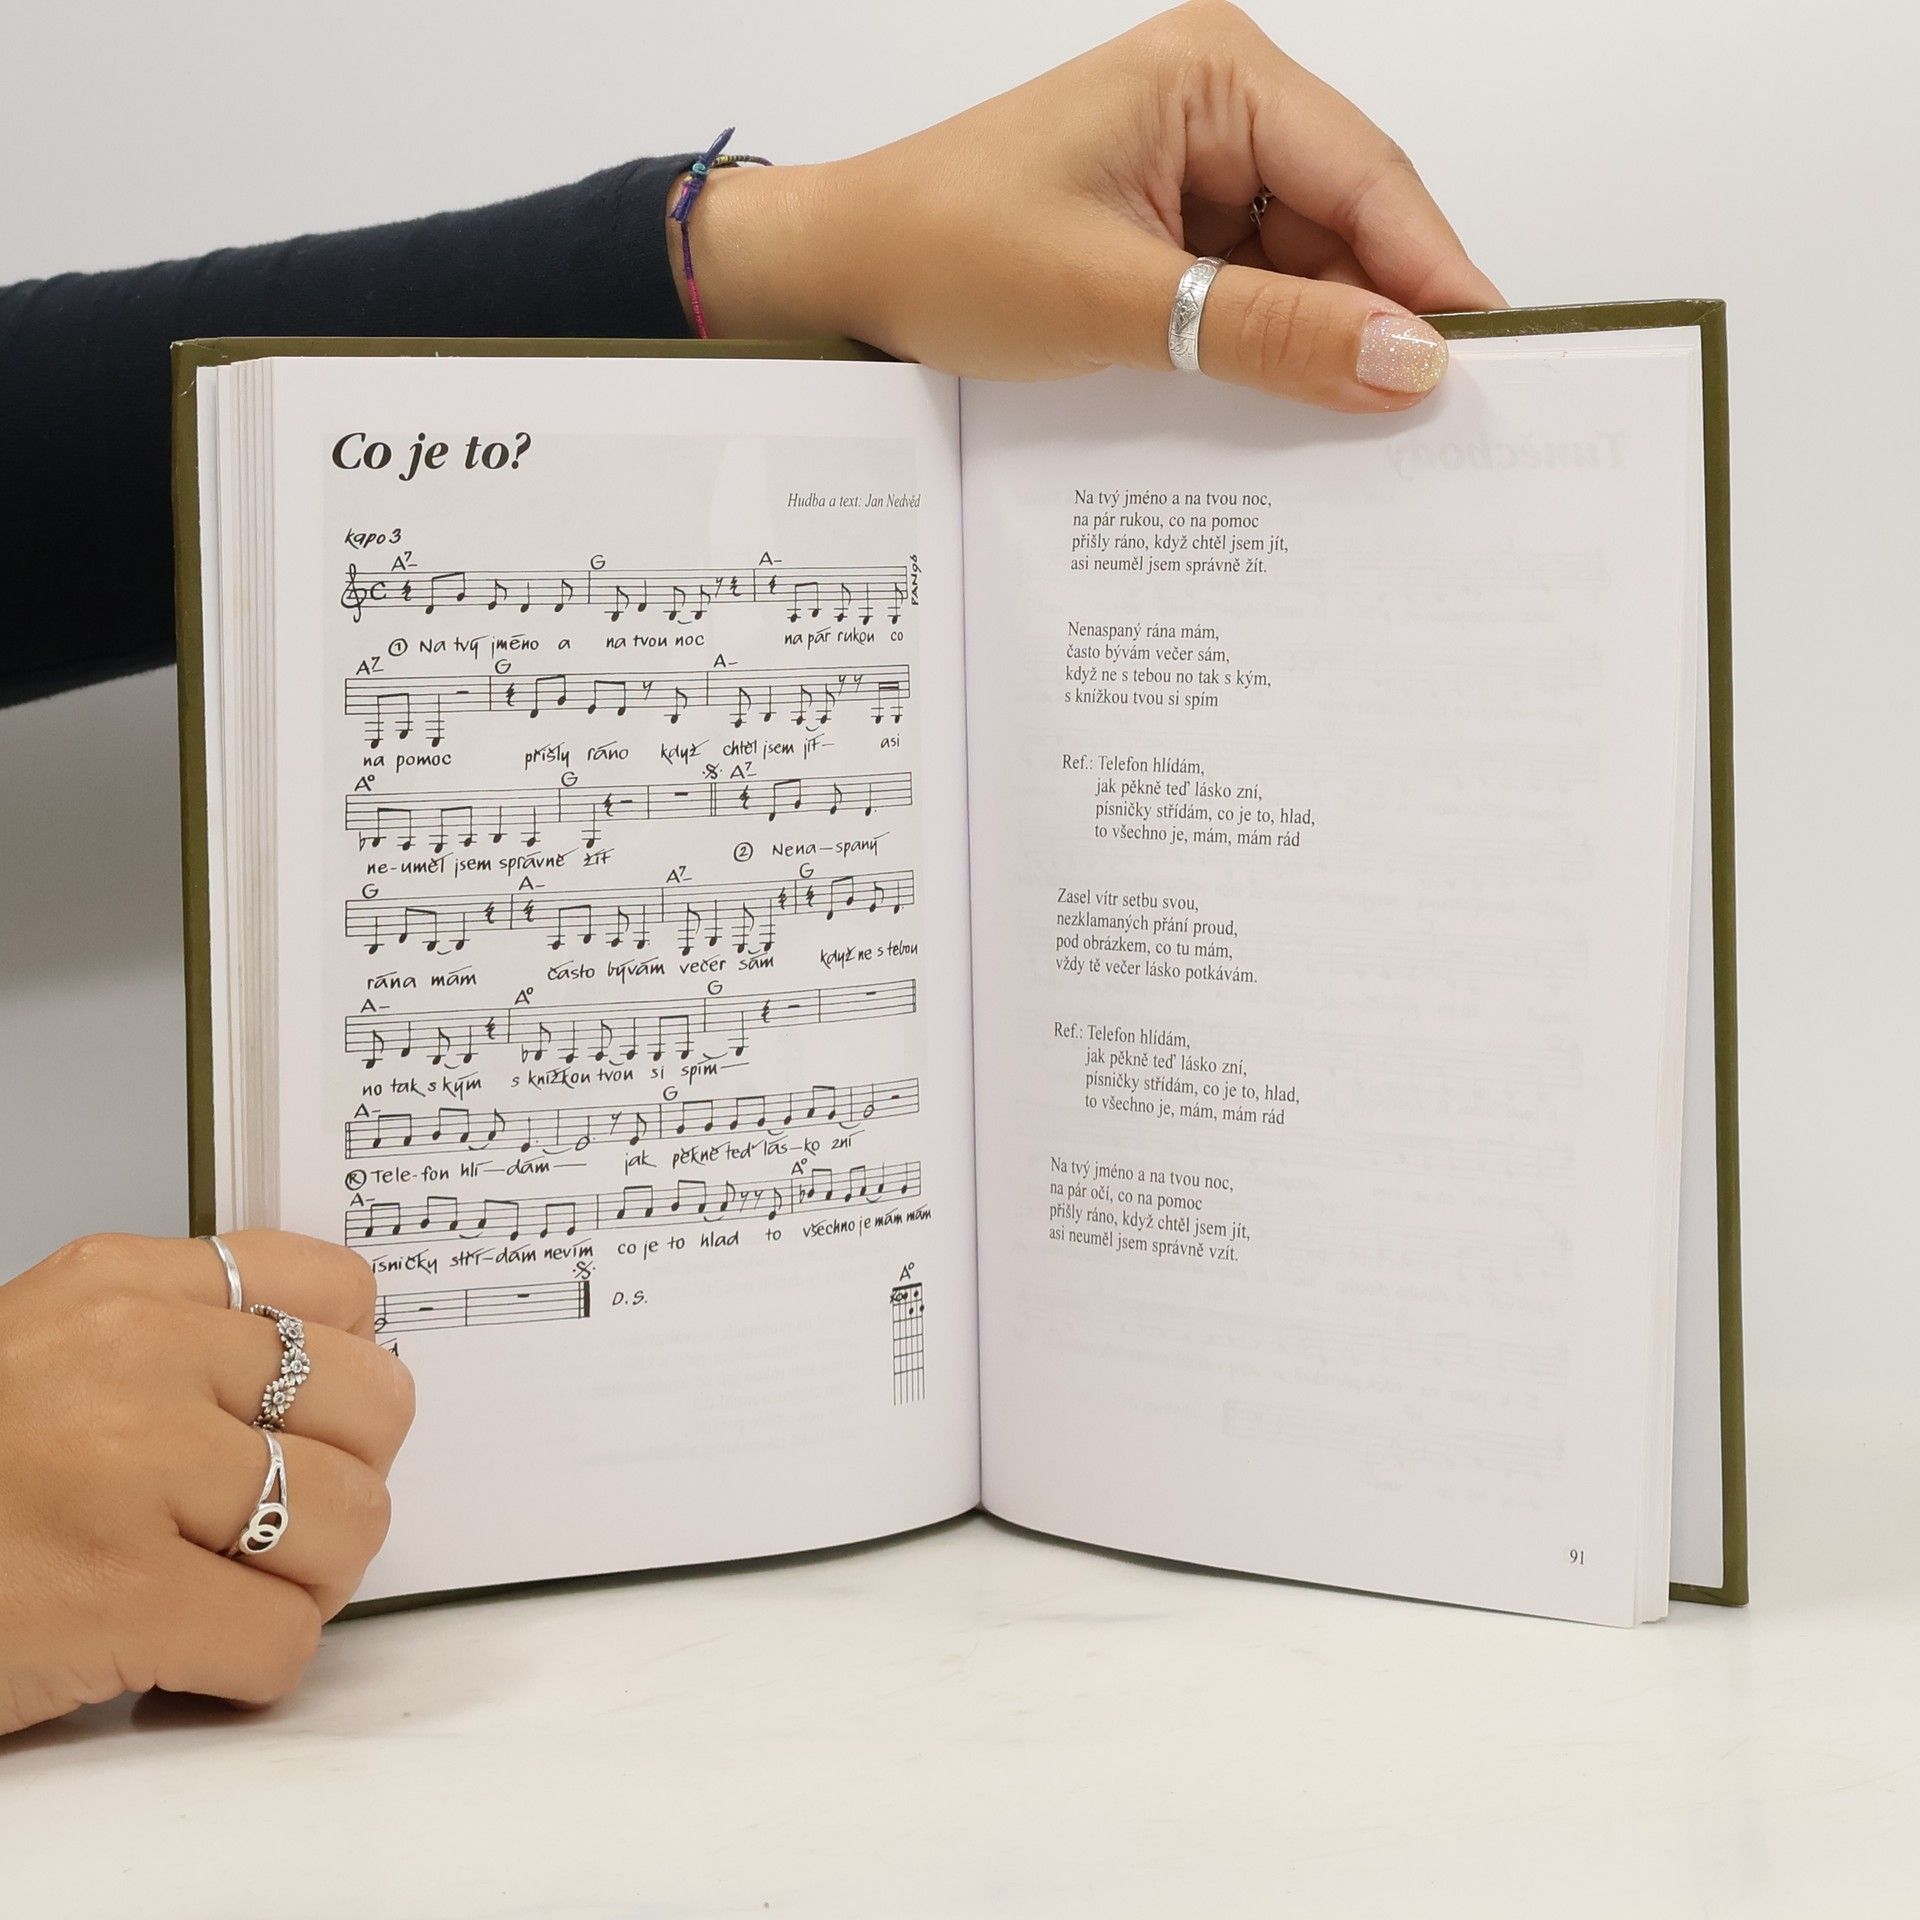 Co je to?
Hudba a text: Jan Nedvěd
kapo 3
A7- G A-
① Na tvý jméno a na tvou noc na pár rukou co
A7 G A-
na pomoc přišly ráno když chtěl jsem jít— asi
A° G A7-
ne-uměl jsem správně žít ② Nena—spaný
G A- A7- G
rána mám často bývám večer sám když ne s tebou
A- A° G
no tak s kým s knížkou tvou si spím—
A- G
Ⓡ Tele-fon hlí—dám— jak pěkně teď lás—ko zní
A- A°
ísničky stří—dám nevím co je to hlad to všechno je mám mám
D.S.
A°
Na tvý jméno a na tvou noc,
na pár rukou, co na pomoc
přišly ráno, když chtěl jsem jít,
asi neuměl jsem správně žít.
Nenaspaný rána mám,
často bývám večer sám,
když ne s tebou no tak s kým,
s knížkou tvou si spím
Ref.: Telefon hlídám,
jak pěkně teď lásko zní,
písničky střídám, co je to, hlad,
to všechno je, mám, mám rád
Zasel vítr setbu svou,
nezklamaných přání proud,
pod obrázkem, co tu mám,
vždy tě večer lásko potkávám.
Ref.: Telefon hlídám,
jak pěkně teď lásko zní,
písničky střídám, co je to, hlad,
to všechno je, mám, mám rád
Na tvý jméno a na tvou noc,
na pár očí, co na pomoc
přišly ráno, když chtěl jsem jít,
asi neuměl jsem správně vzít.
91